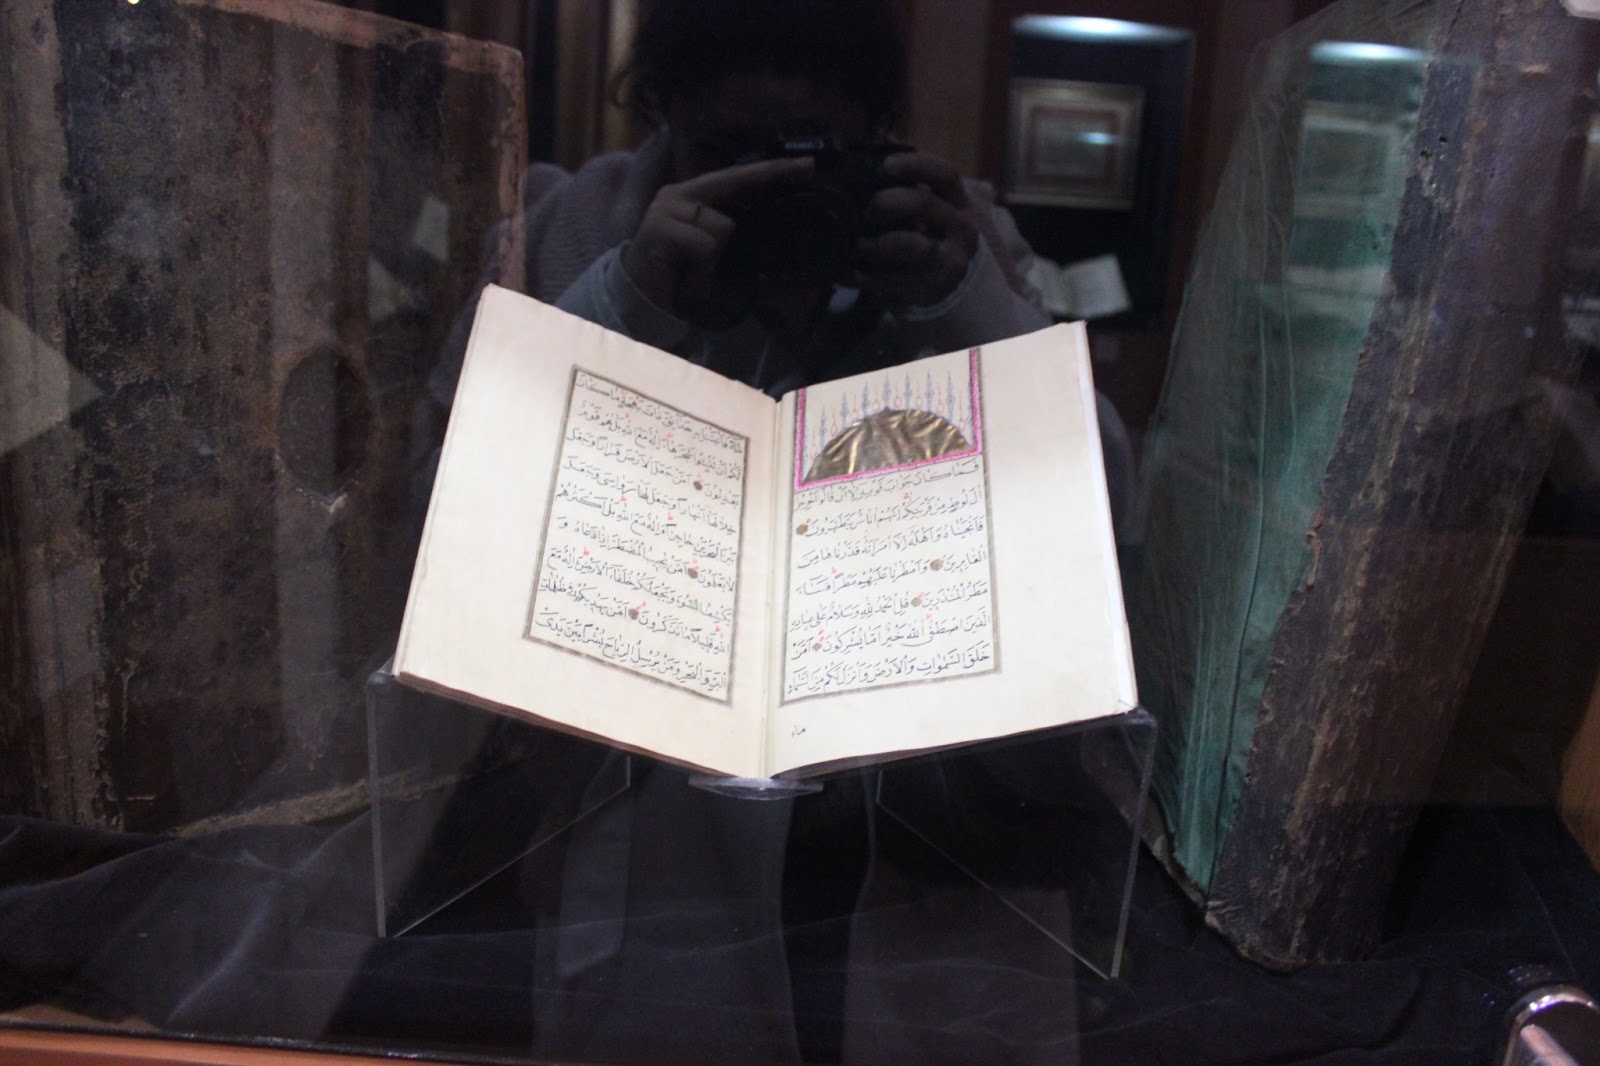 فَمَا كَانَ جَوَابَ قَوْمِهِ اِلَّا اَنْ قَالُوا اَخْرِجُوا
اٰلَ لُوطٍ مِنْ قَرْيَتِكُمْ اِنَّهُمْ اُنَاسٌ يَتَطَهَّرُونَ
فَاَنْجَيْنَاهُ وَاَهْلَهُ اِلَّا امْرَاَتَهُ قَدَّرْنَاهَا مِنَ
الْغَابِرِينَ وَاَمْطَرْنَا عَلَيْهِمْ مَطَرًا فَسَاءَ
مَطَرُ الْمُنْذَرِينَ قُلِ الْحَمْدُ لِلّٰهِ وَسَلَامٌ عَلٰى عِبَادِهِ
الَّذِينَ اصْطَفٰى اللّٰهُ خَيْرٌ اَمَّا يُشْرِكُونَ اَمَّنْ
خَلَقَ السَّمٰوَاتِ وَالْاَرْضَ وَاَنْزَلَ لَكُمْ مِنَ السَّمَاءِ
ماء
مَاءً فَاَنْبَتْنَا بِهِ حَدَائِقَ ذَاتَ بَهْجَةٍ مَا كَانَ
لَكُمْ اَنْ تُنْبِتُوا شَجَرَهَا ءَاِلٰهٌ مَعَ اللّٰهِ بَلْ هُمْ قَوْمٌ
يَعْدِلُونَ اَمَّنْ جَعَلَ الْاَرْضَ قَرَارًا وَجَعَلَ
خِلَالَهَا اَنْهَارًا وَجَعَلَ لَهَا رَوَاسِيَ وَجَعَلَ
بَيْنَ الْبَحْرَيْنِ حَاجِزًا ءَاِلٰهٌ مَعَ اللّٰهِ بَلْ اَكْثَرُهُمْ
لَا يَعْلَمُونَ اَمَّنْ يُجِيبُ الْمُضْطَرَّ اِذَا دَعَاهُ وَ
يَكْشِفُ السُّوءَ وَيَجْعَلُكُمْ خُلَفَاءَ الْاَرْضِ ءَاِلٰهٌ مَعَ
اللّٰهِ قَلِيلًا مَا تَذَكَّرُونَ اَمَّنْ يَهْدِيكُمْ فِي ظُلُمَاتِ
الْبَرِّ وَالْبَحْرِ وَمَنْ يُرْسِلُ الرِّيَاحَ بُشْرًا بَيْنَ يَدَيْ